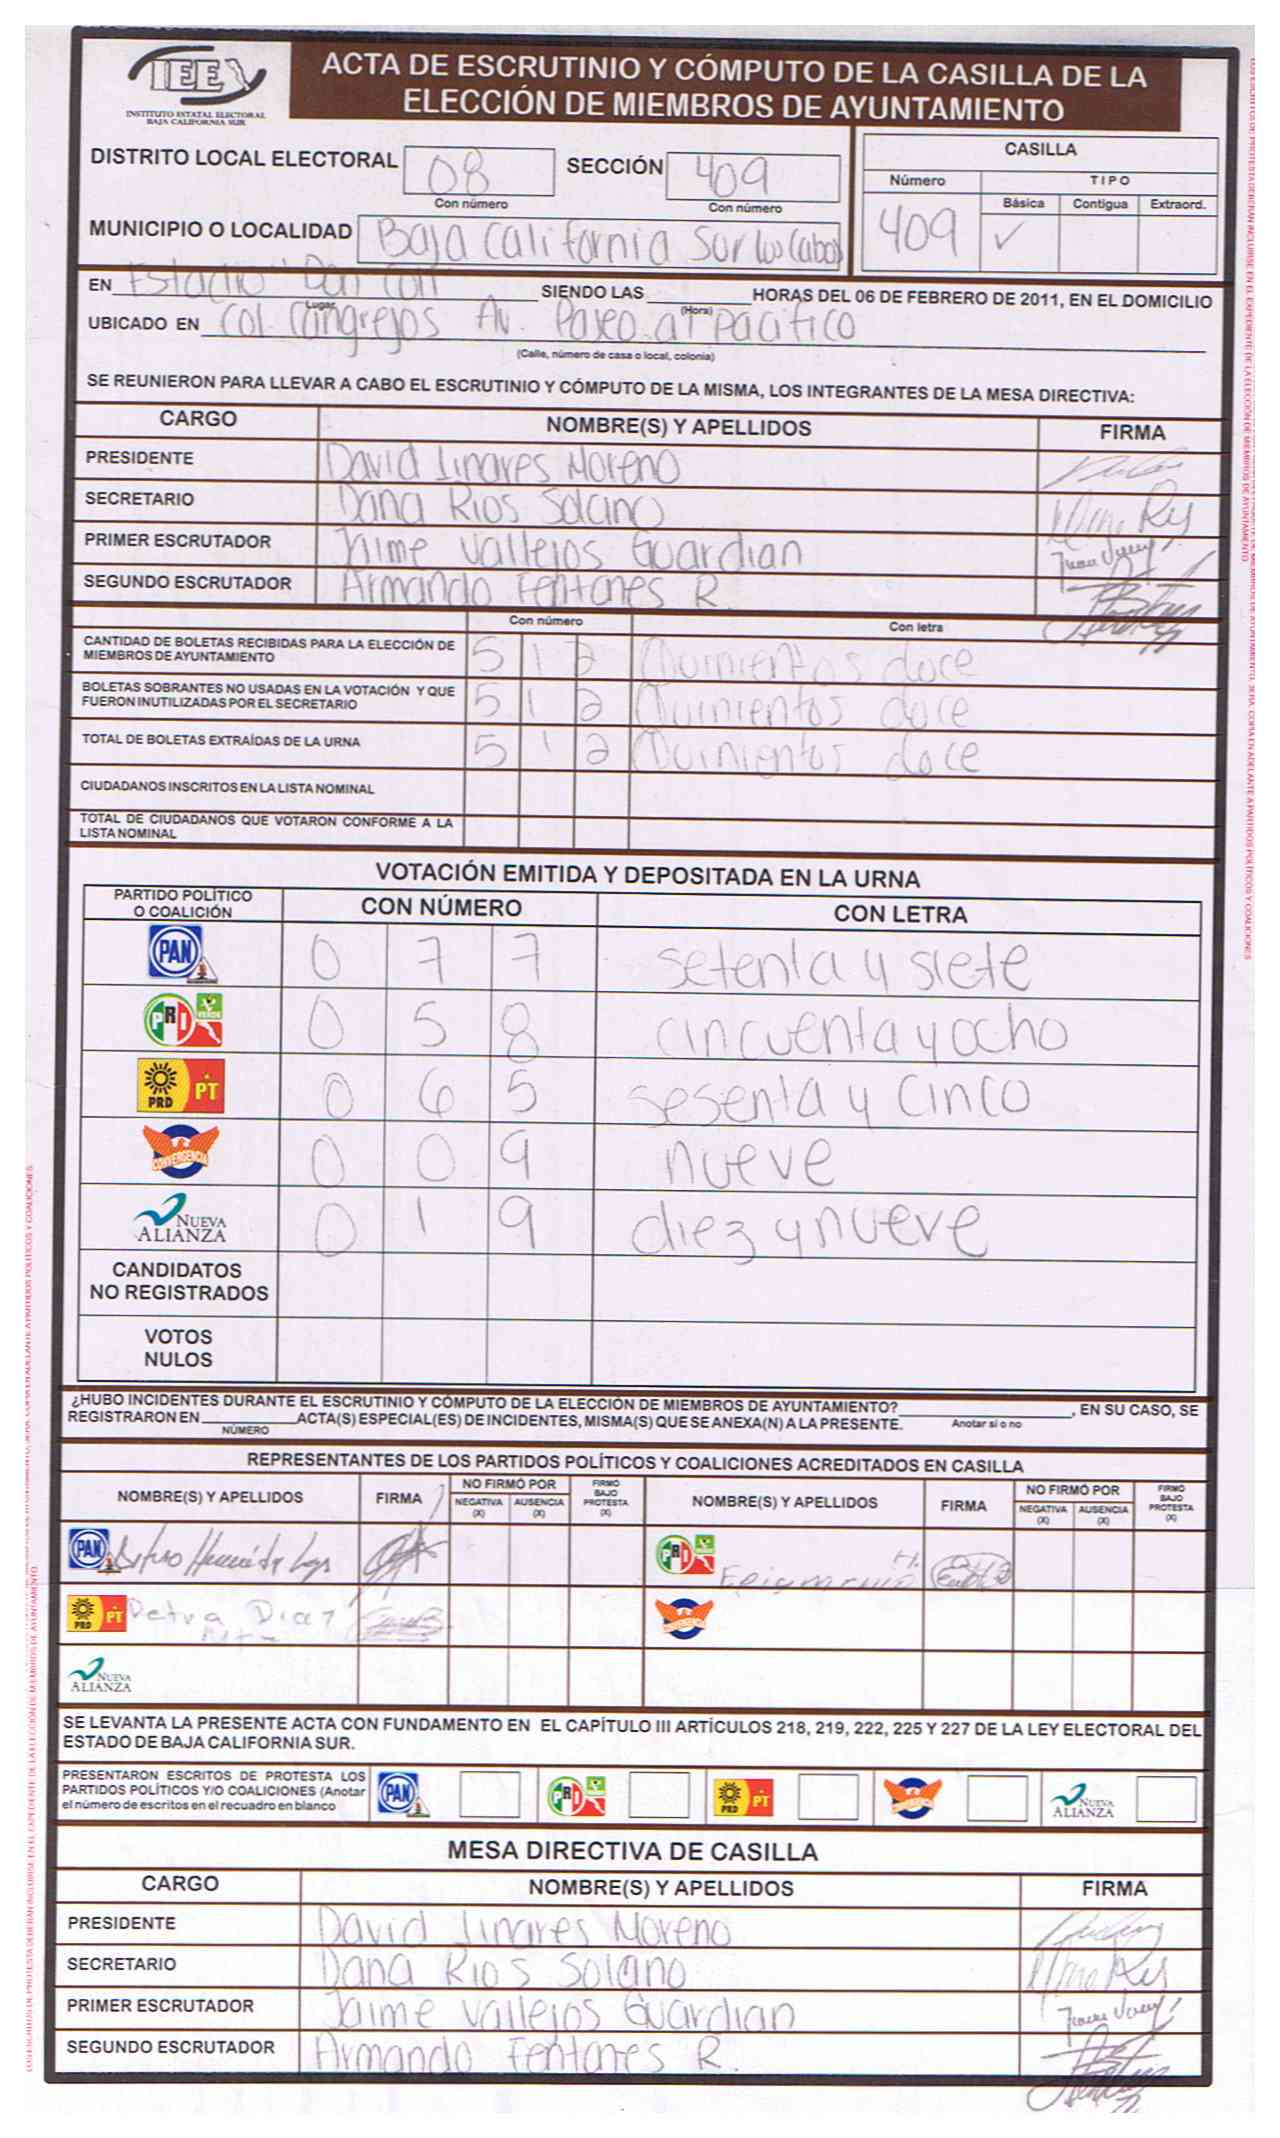 IEE
INSTITUTO ESTATAL ELECTORAL
BAJA CALIFORNIA SUR
ACTA DE ESCRUTINIO Y CÓMPUTO DE LA CASILLA DE LA
ELECCIÓN DE MIEMBROS DE AYUNTAMIENTO
DISTRITO LOCAL ELECTORAL 08 SECCIÓN 409
Con número Con número
MUNICIPIO O LOCALIDAD Baja California Sur Los Cabos
CASILLA
Número TIPO
Básica Contigua Extraord.
409 ✓
EN Estadio Don Coll SIENDO LAS HORAS DEL 06 DE FEBRERO DE 2011, EN EL DOMICILIO
Lugar (Hora)
UBICADO EN Col. Cangrejos Av. Paseo al Pacifico
(Calle, número de casa o local, colonia)
SE REUNIERON PARA LLEVAR A CABO EL ESCRUTINIO Y CÓMPUTO DE LA MISMA, LOS INTEGRANTES DE LA MESA DIRECTIVA:
CARGO NOMBRE(S) Y APELLIDOS FIRMA
PRESIDENTE David Linares Moreno
SECRETARIO Dana Rios Solano
PRIMER ESCRUTADOR Jaime Vallejos Guardian
SEGUNDO ESCRUTADOR Armando Fentanes R.
Con número Con letra
CANTIDAD DE BOLETAS RECIBIDAS PARA LA ELECCIÓN DE
MIEMBROS DE AYUNTAMIENTO 5 1 2 Quinientos doce
BOLETAS SOBRANTES NO USADAS EN LA VOTACIÓN Y QUE
FUERON INUTILIZADAS POR EL SECRETARIO 5 1 2 Quinientos doce
TOTAL DE BOLETAS EXTRAÍDAS DE LA URNA 5 1 2 Quinientos doce
CIUDADANOS INSCRITOS EN LA LISTA NOMINAL
TOTAL DE CIUDADANOS QUE VOTARON CONFORME A LA
LISTA NOMINAL
VOTACIÓN EMITIDA Y DEPOSITADA EN LA URNA
PARTIDO POLÍTICO
O COALICIÓN CON NÚMERO CON LETRA
PAN 0 7 7 setenta y siete
PRI VERDE 0 5 8 cincuenta y ocho
PRD PT 0 6 5 sesenta y cinco
CONVERGENCIA 0 0 9 nueve
NUEVA ALIANZA 0 1 9 diez y nueve
CANDIDATOS
NO REGISTRADOS
VOTOS
NULOS
¿HUBO INCIDENTES DURANTE EL ESCRUTINIO Y CÓMPUTO DE LA ELECCIÓN DE MIEMBROS DE AYUNTAMIENTO? , EN SU CASO, SE
REGISTRARON EN ACTA(S) ESPECIAL(ES) DE INCIDENTES, MISMA(S) QUE SE ANEXA(N) A LA PRESENTE. Anotar sí o no
NÚMERO
REPRESENTANTES DE LOS PARTIDOS POLÍTICOS Y COALICIONES ACREDITADOS EN CASILLA
NOMBRE(S) Y APELLIDOS FIRMA NO FIRMÓ POR NEGATIVA (X) AUSENCIA (X) FIRMO BAJO PROTESTA (X) NOMBRE(S) Y APELLIDOS FIRMA NO FIRMÓ POR NEGATIVA (X) AUSENCIA (X) FIRMO BAJO PROTESTA (X)
PAN Arturo PRI VERDE H.
PRD PT Petra Diaz CONVERGENCIA
NUEVA ALIANZA
SE LEVANTA LA PRESENTE ACTA CON FUNDAMENTO EN EL CAPÍTULO III ARTÍCULOS 218, 219, 222, 225 Y 227 DE LA LEY ELECTORAL DEL
ESTADO DE BAJA CALIFORNIA SUR.
PRESENTARON ESCRITOS DE PROTESTA LOS
PARTIDOS POLÍTICOS Y/O COALICIONES (Anotar
el número de escritos en el recuadro en blanco
PAN PRI VERDE PRD PT CONVERGENCIA NUEVA ALIANZA
MESA DIRECTIVA DE CASILLA
CARGO NOMBRE(S) Y APELLIDOS FIRMA
PRESIDENTE David Linares Moreno
SECRETARIO Dana Rios Solano
PRIMER ESCRUTADOR Jaime Vallejos Guardian
SEGUNDO ESCRUTADOR Armando Fentanes R.